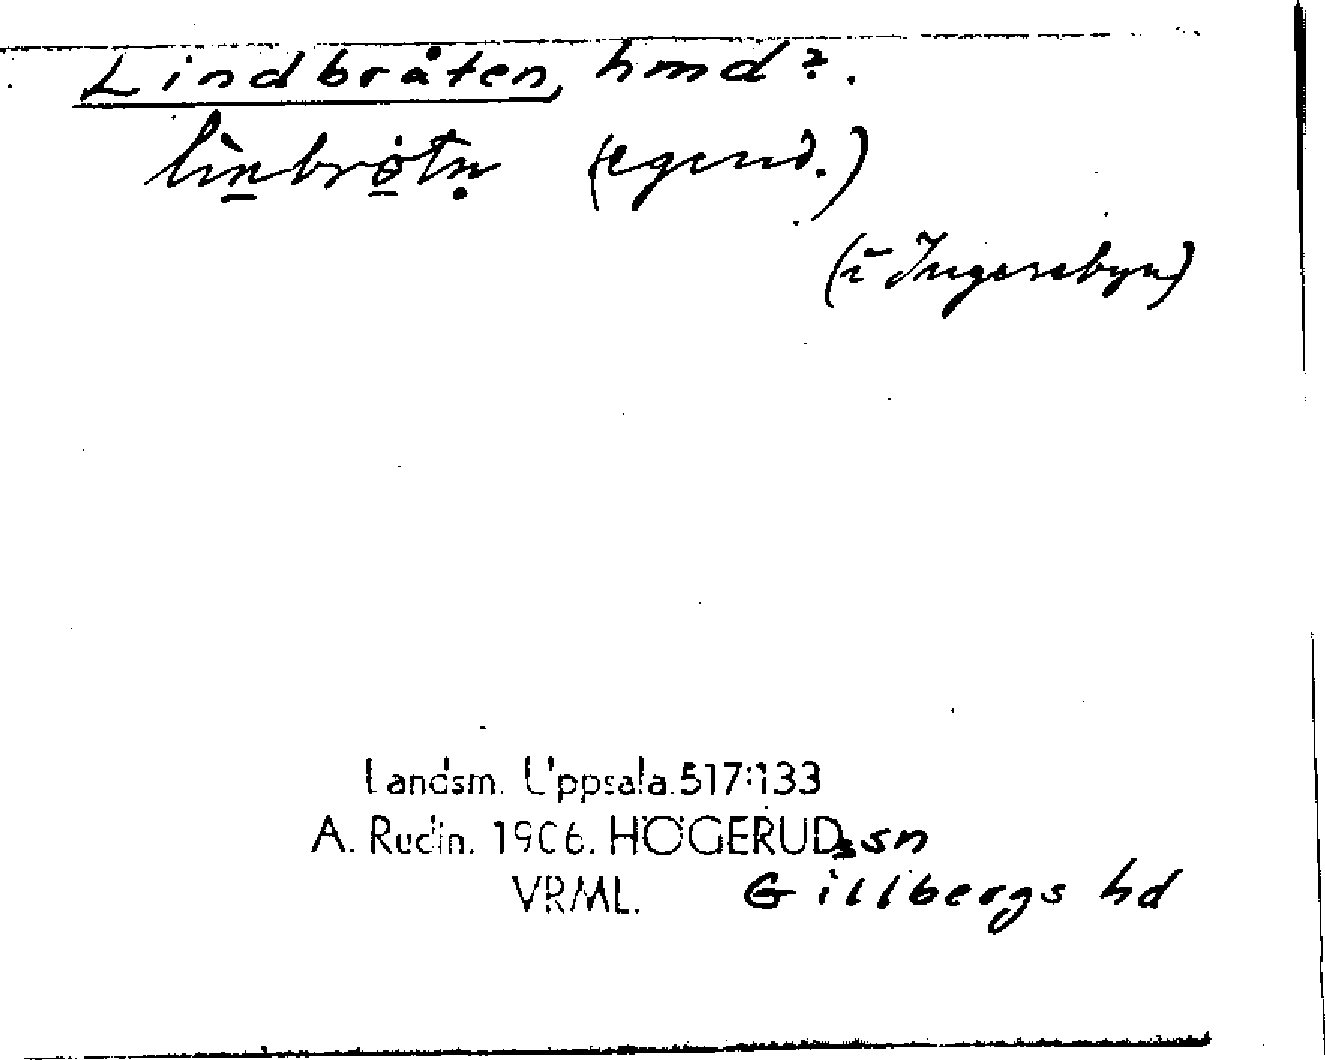 Lindbråten, hmd?.
lìn̲brȯ̲tṇ (egend.)
(i Ingersbyn)
Landsm. Uppsala.517:133
A. Rudin. 1906. HÖGERUDs sn
VRML. Gillbergs hd